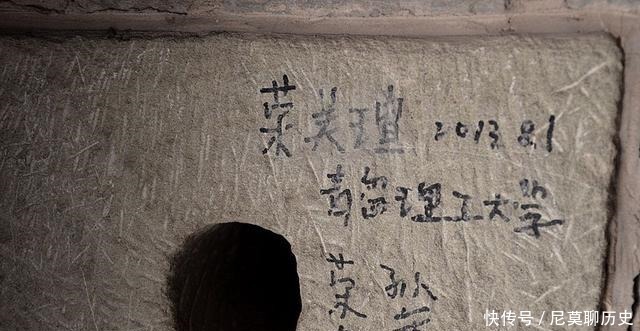 荣美瑄 2013.8.1
青岛理工大学
孙
快传号 / 尼莫聊历史